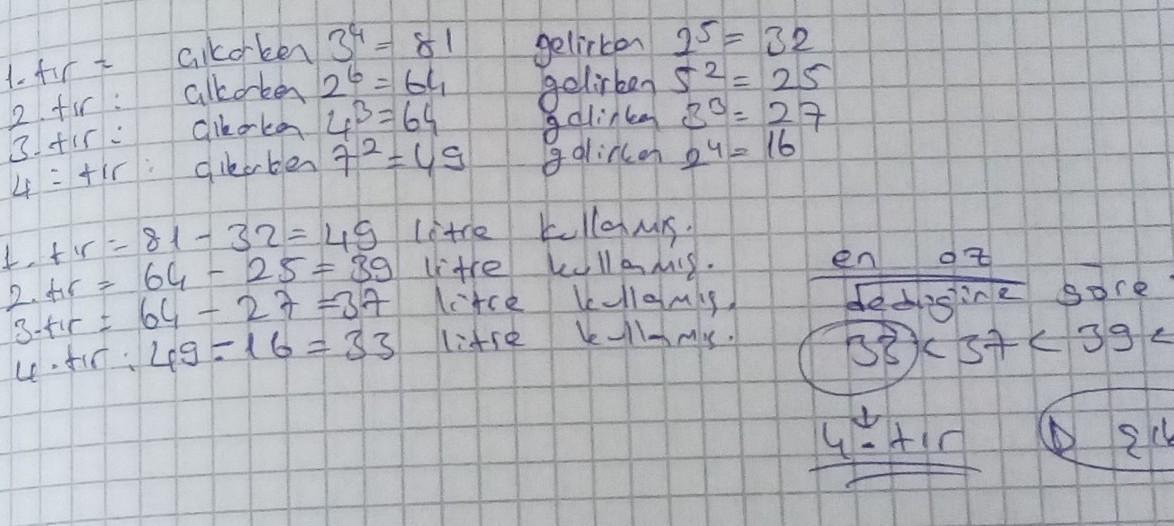 1. tır = çıkarken 3⁴ = 81 gelirken 2⁵ = 32
2. tır : çıkarken 2⁶ = 64 gelirken 5² = 25
3. tır : çıkarken 4³ = 64 gelirken 3³ = 27
4 = tır : çıkarken 7² = 49 gelirken 2⁴ = 16
1. tır = 81 - 32 = 49 litre kullanmış.
2. tır = 64 - 25 = 39 litre kullanmış.
3. tır = 64 - 27 = 37 litre kullanmış.
4. tır : 49 - 16 = 33 litre kullanmış.
en az
dediğine göre
33 < 37 < 39 <
4. tır D